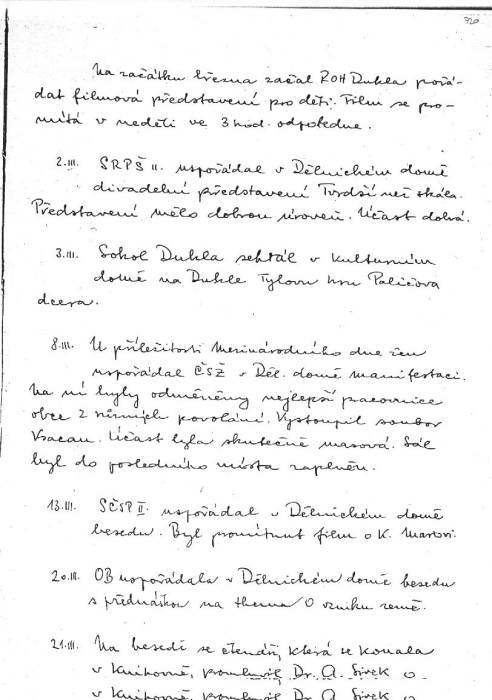 320
Na začátku března začal ROH Dukla pořá-
dat filmová představení pro děti. Film se pro-
mítá v neděli ve 3 hod. odpoledne.
2.III. SRPŠ II. uspořádal v Dělnickém domě
divadelní představení Tvrdší než skála.
Představení mělo dobrou úroveň. Účast dobrá.
3.III. Sokol Dukla sehrál v kulturním
domě na Dukle Tylovu hru Paličova
dcera.
8.III. U příležitosti Mezinárodního dne žen
uspořádal ČSŽ v Děl. domě manifestaci.
Na ní byly odměněny nejlepší pracovnice
obce z různých povolání. Vystoupil soubor
Vsacan. Účast byla skutečně masová. Sál
byl do posledního místa zaplněn.
13.III. SČSP II. uspořádal v Dělnickém domě
besedu. Byl promítnut film o K. Marxovi.
20.III. OB uspořádala v Dělnickém domě besedu
s přednáškou na thema O vzniku země.
21.III. Na besedě se čtenáři, která se konala
v knihovně, promluvil Dr. A. Sivek o
v knihovně, promluvil Dr. A. Sivek o